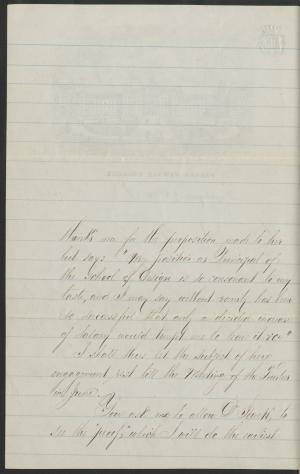 thanks me for the proposition made to her
but says "My position as Principal of
the School of Design is so consonant to my
taste, and I may say without vanity has been
so successful that only a decided increase
of Salary would tempt me to leave it &c"
I shall then let the subject of her
engagement rest till the Meeting of the Trustees
in June.
You ask me to allow Dr to
see the "proof," which I will do the earliest